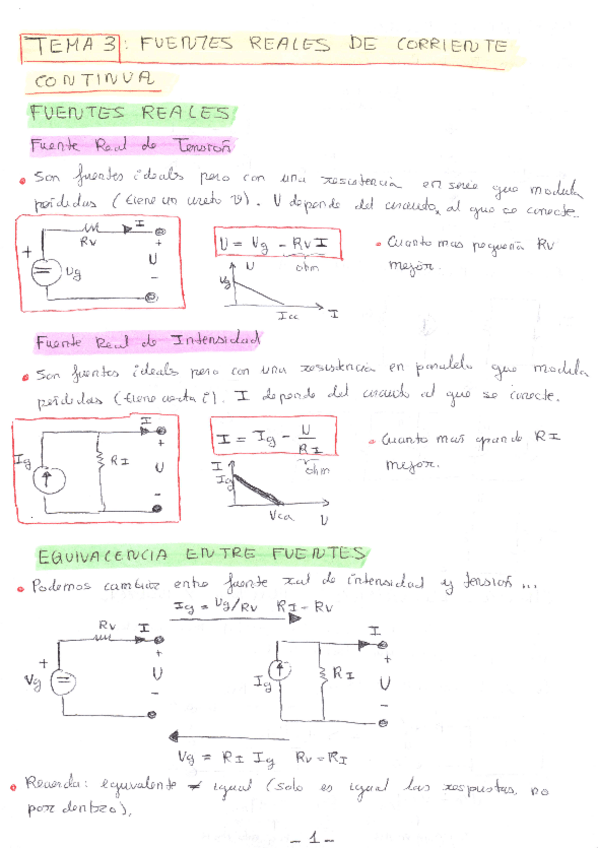 TEMA 3: FUENTES REALES DE CORRIENTE
CONTINUA
FUENTES REALES
Fuente Real de Tensión
• Son fuentes ideales pero con una resistencia en serie que modula
pérdidas (tiene un cierto v). U depende del circuito, al que se conecte.
I
Rv
+
+
U
-
Ug
U = Vg - Rv I
ohm
U
Vg
Icc
I
• Cuanto mas pequeña Rv
mejor.
Fuente Real de Intensidad
• Son fuentes ideales pero con una resistencia en paralelo que modula
pérdidas (tiene cierta i). I depende del circuito al que se conecte.
I
Ig
RI
+
U
-
I = Ig - U/RI
ohm
I
Ig
Vca
U
• Cuanto mas grande RI
mejor.
EQUIVALENCIA ENTRE FUENTES
• Podemos cambiar entre fuente real de intensidad y tensión ...
Ig = Vg/Rv RI = Rv
Rv
I
+
Vg
+
U
-
I
Ig
RI
+
U
-
Vg = RI Ig Rv = RI
• Recuerda: equivalente ≠ igual (solo es igual las respustas, no
por dentro),
- 1 -